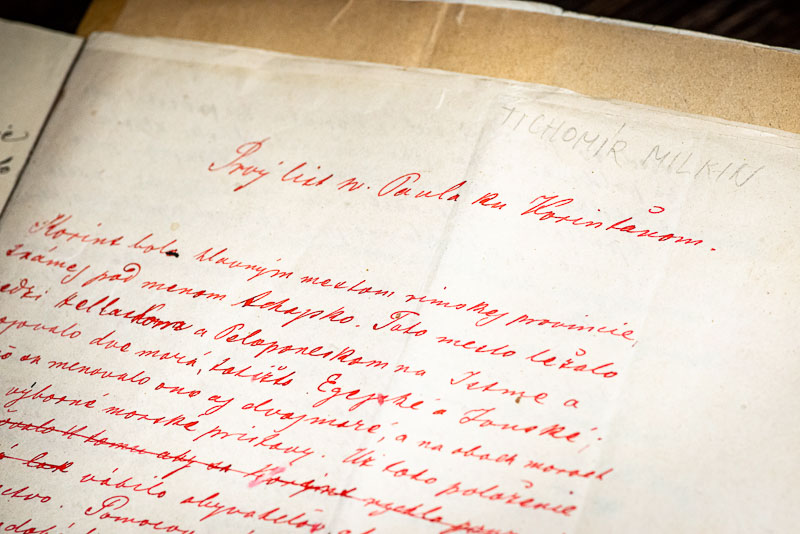 TICHOMÍR MILKIN
Prvý list sv. Pavla ku Korinťanom.
Korint bolo hlavným mestom rímskej provincie,
známej pod menom Achajsko. Toto mesto ležalo
medzi Helladskom a Peloponeskom na Istme a
dve moria, totižto: Egejské a Jonské;
sa menovalo ono aj dvojmoré, a na oboch moroch
výborné morské prístavy. Už toto položenie
k tomu aby sa Korint
tak vábilo obyvateľov
Pomocou